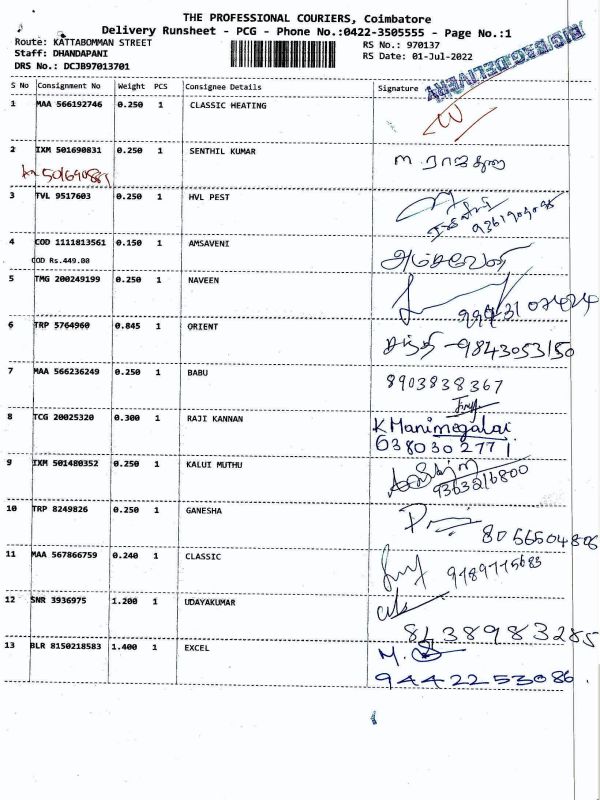 THE PROFESSIONAL COURIERS, Coimbatore
Delivery Runsheet - PCG - Phone No.:0422-3505555 - Page No.:1
Route: KATTABOMMAN STREET RS No.: 970137
Staff: DHANDAPANI RS Date: 01-Jul-2022
DRS No.: DCJB97013701
S No Consignment No Weight PCS Consignee Details Signature
1 MAA 566192746 0.250 1 CLASSIC HEATING
2 IXM 501690831 0.250 1 SENTHIL KUMAR
3 TVL 9517603 0.250 1 HVL PEST
4 COD 1111813561 0.150 1 AMSAVENI
COD Rs.449.00
5 TMG 200249199 0.250 1 NAVEEN
6 TRP 5764960 0.845 1 ORIENT
9843053150
7 MAA 566236249 0.250 1 BABU 8903838367
8 TCG 20025320 0.300 1 RAJI KANNAN K Manimegalai
6380302771
9 IXM 501480352 0.250 1 KALUI MUTHU
9363216800
10 TRP 8249826 0.250 1 GANESHA
11 MAA 567866759 0.240 1 CLASSIC
12 SNR 3936975 1.200 1 UDAYAKUMAR
8438983285
13 BLR 8150218583 1.400 1 EXCEL
9442253086.